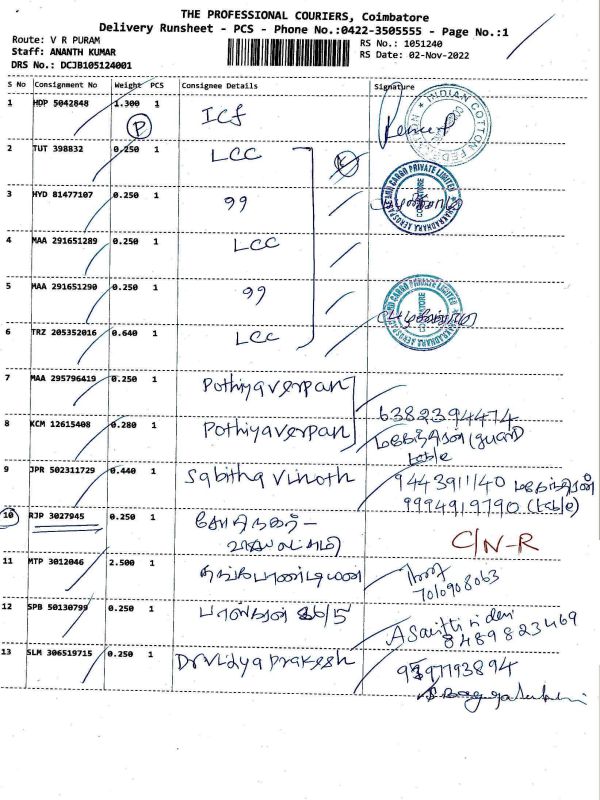 THE PROFESSIONAL COURIERS, Coimbatore
Delivery Runsheet - PCS - Phone No.:0422-3505555 - Page No.:1
Route: V R PURAM
Staff: ANANTH KUMAR
DRS No.: DCJB105124001
RS No.: 1051240
RS Date: 02-Nov-2022
S No Consignment No Weight PCS Consignee Details Signature
1 HDP 5042848 1.300 1 ICF
INDIAN COTTON FEDERATION
P
2 TUT 398832 0.250 1 LCC
3 HYD 81477107 0.250 1 99
CHAKRADHARA AEROSPACE AND CARGO PRIVATE LIMITED
COIMBATORE
4 MAA 291651289 0.250 1 LCC
5 MAA 291651290 0.250 1 99
CHAKRADHARA AEROSPACE AND CARGO PRIVATE LIMITED
COIMBATORE
6 TRZ 205352016 0.640 1 LCC
7 MAA 295796419 0.250 1 Pothiyaverpan
6382394474
8 KCM 12615408 0.280 1 Pothiyaverpan
(guard
table
9 JPR 502311729 0.440 1 Sabitha Vinoth
9443911140
9994919790 (table)
10 RJP 3027945 0.250 1
C/N-R
11 MTP 3012046 2.500 1 தங்கபாண்டியன்
7010908063
12 SPB 50130799 0.250 1 36/5
8489823469
13 SLM 306519715 0.250 1 Dr Vidya prakesh